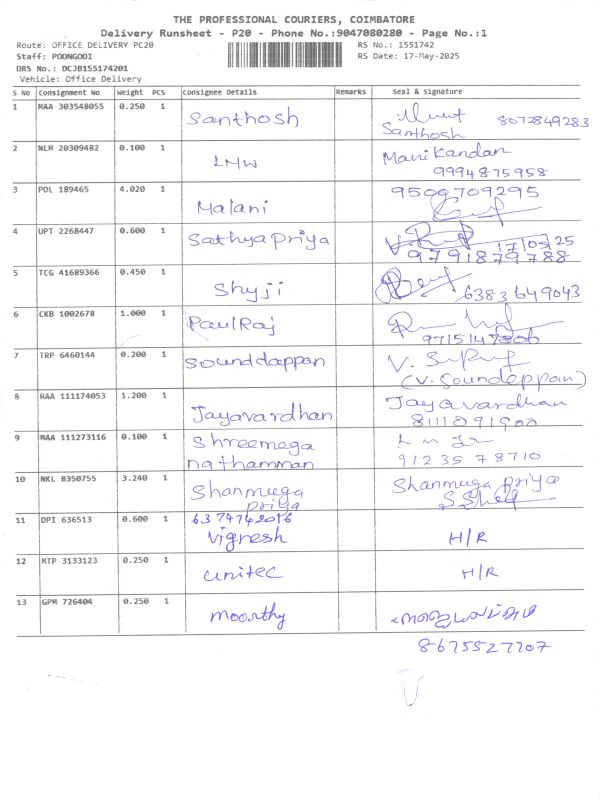 THE PROFESSIONAL COURIERS, COIMBATORE
Delivery Runsheet - P20 - Phone No.:9047080280 - Page No.:1
Route: OFFICE DELIVERY PC20 RS No.: 1551742
Staff: POONGODI RS Date: 17-May-2025
DRS No.: DCJB155174201
Vehicle: Office Delivery
S No Consignment No Weight PCS Consignee Details Remarks Seal & Signature
1 MAA 303548055 0.250 1 Santhosh 8072849283
Santhosh
2 NLM 20309482 0.100 1 LMW Manikandan
9994875958
3 POL 189465 4.020 1 Malani 9500709295
4 UPT 2268447 0.600 1 Sathyapriya 17/05/25
9791879788
5 TCG 41689366 0.450 1 Shyji 6383649043
6 CKB 1002678 1.000 1 PaulRaj
9715147306
7 TRP 6460144 0.200 1 Sounddappan
(V. Soundappan)
8 RAA 111174053 1.200 1 Jayavardhan Jayavardhan
8111091900
9 MAA 111273116 0.100 1 Shreemaga
nathamman 9123578710
10 NKL 8350755 3.240 1 Shanmuga Shanmuga priya
priya
11 DPI 636513 0.600 1 6374742016
Vignesh H/R
12 RTP 3133123 0.250 1 Unitec H/R
13 GPM 726404 0.250 1 Moorthy
8675527707